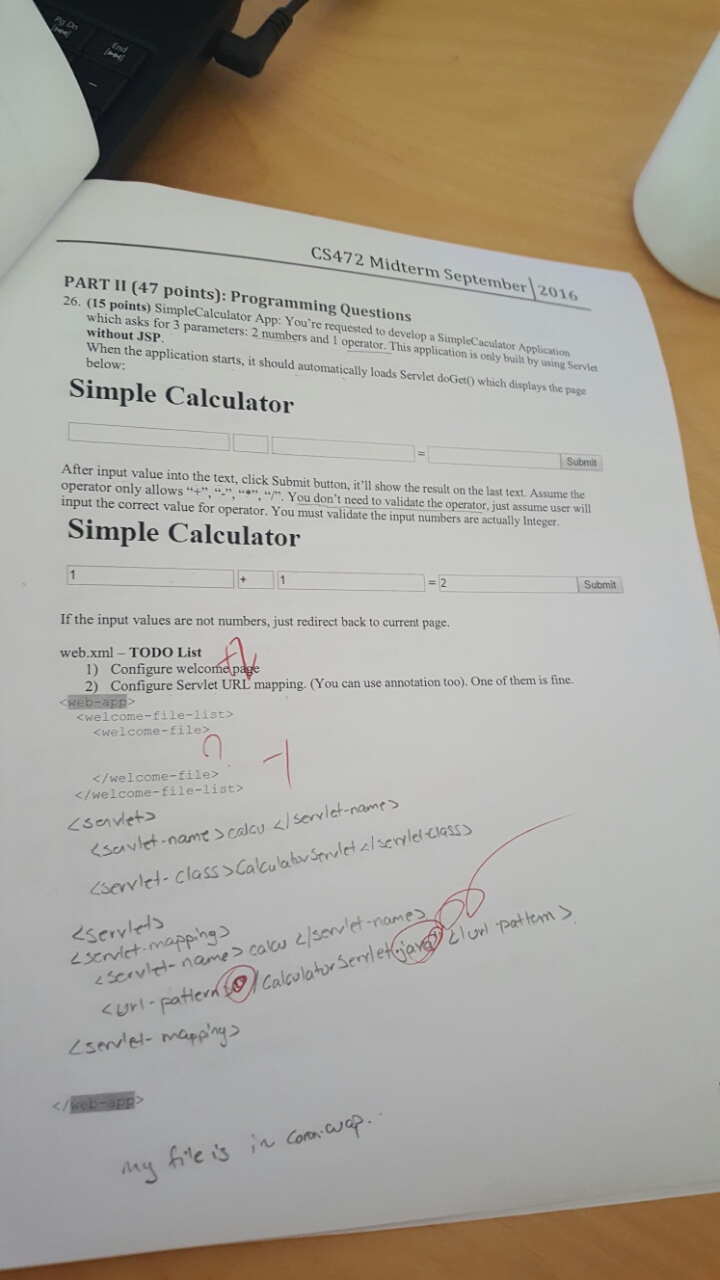 Pg Dn
End
CS472 Midterm September 2016
PART II (47 points): Programming Questions
26. (15 points) SimpleCalculator App: You're requested to develop a SimpleCaculator Application
which asks for 3 parameters: 2 numbers and 1 operator. This application is only built by using Servlet
without JSP.
When the application starts, it should automatically loads Servlet doGet() which displays the page
below:
Simple Calculator
= Submit
After input value into the text, click Submit button, it'll show the result on the last text. Assume the
operator only allows “+”, “-”, “*”, “/”. You don't need to validate the operator, just assume user will
input the correct value for operator. You must validate the input numbers are actually Integer.
Simple Calculator
1 + 1 = 2 Submit
If the input values are not numbers, just redirect back to current page.
+2
web.xml – TODO List
1) Configure welcome page
2) Configure Servlet URL mapping. (You can use annotation too). One of them is fine.
<web-app>
<welcome-file-list>
<welcome-file>
? -1
</welcome-file>
</welcome-file-list>
<servlet>
<servlet-name>calcu </servlet-name>
<servlet-class>CalculatorServlet </servlet-class>
<servlet>
<servlet-mapping>
<servlet-name> calcu </servlet-name>
<url-pattern> /CalculatorServlet.java </url-pattern>
<servlet-mapping>
</web-app>
my file is in